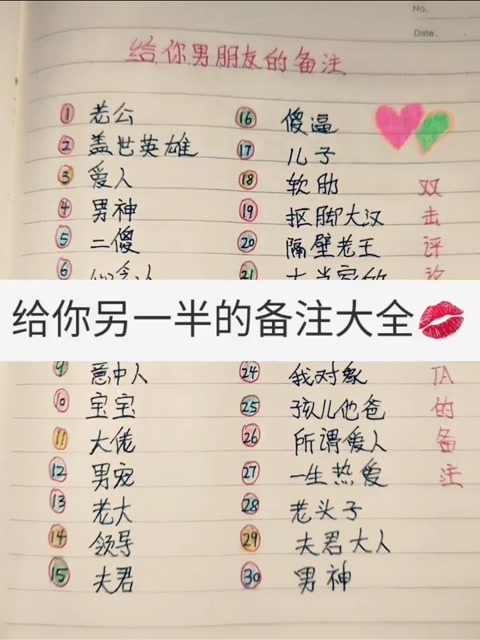 No.
Date.
给你男朋友的备注
1 老公
2 盖世英雄
3 爱人
4 男神
5 二傻
6
给你另一半的备注大全
9 意中人
10 宝宝
11 大佬
12 男宠
13 老大
14 领导
15 夫君
16 傻逼
17 儿子
18 软肋
19 抠脚大汉
20 隔壁老王
21 大当家的
24 我对象
25 孩儿他爸
26 所谓爱人
27 一生热爱
28 老头子
29 夫君大人
30 男神
双
击
评
论
TA
的
备
注